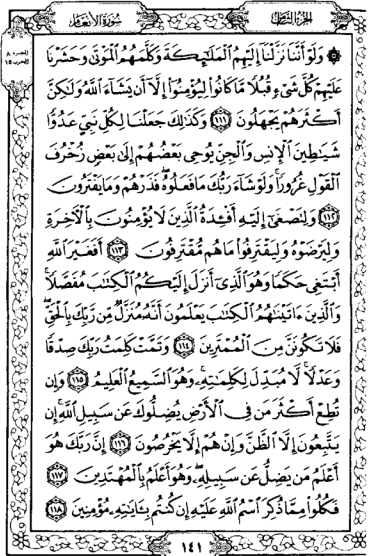 الجزء الثامن
سورة الأنعام
وَلَوْ أَنَّنَا نَزَّلْنَا إِلَيْهِمُ الْمَلَٰٓئِكَةَ وَكَلَّمَهُمُ الْمَوْتَىٰ وَحَشَرْنَا
عَلَيْهِمْ كُلَّ شَىْءٍ قُبُلًا مَّا كَانُوا۟ لِيُؤْمِنُوٓا۟ إِلَّآ أَن يَشَآءَ اللَّهُ وَلَٰكِنَّ
أَكْثَرَهُمْ يَجْهَلُونَ ١١١ وَكَذَٰلِكَ جَعَلْنَا لِكُلِّ نَبِىٍّ عَدُوًّا
شَيَٰطِينَ الْإِنسِ وَالْجِنِّ يُوحِى بَعْضُهُمْ إِلَىٰ بَعْضٍ زُخْرُفَ
الْقَوْلِ غُرُورًا ۚ وَلَوْ شَآءَ رَبُّكَ مَا فَعَلُوهُ ۖ فَذَرْهُمْ وَمَا يَفْتَرُونَ
١١٢ وَلِتَصْغَىٰٓ إِلَيْهِ أَفْـِٔدَةُ الَّذِينَ لَا يُؤْمِنُونَ بِالْءَاخِرَةِ
وَلِيَرْضَوْهُ وَلِيَقْتَرِفُوا۟ مَا هُم مُّقْتَرِفُونَ ١١٣ أَفَغَيْرَ اللَّهِ
أَبْتَغِى حَكَمًا وَهُوَ الَّذِىٓ أَنزَلَ إِلَيْكُمُ الْكِتَٰبَ مُفَصَّلًا ۚ
وَالَّذِينَ ءَاتَيْنَٰهُمُ الْكِتَٰبَ يَعْلَمُونَ أَنَّهُۥ مُنَزَّلٌ مِّن رَّبِّكَ بِالْحَقِّ ۖ
فَلَا تَكُونَنَّ مِنَ الْمُمْتَرِينَ ١١٤ وَتَمَّتْ كَلِمَتُ رَبِّكَ صِدْقًا
وَعَدْلًا ۚ لَّا مُبَدِّلَ لِكَلِمَٰتِهِۦ ۚ وَهُوَ السَّمِيعُ الْعَلِيمُ ١١٥ وَإِن
تُطِعْ أَكْثَرَ مَن فِى الْأَرْضِ يُضِلُّوكَ عَن سَبِيلِ اللَّهِ ۚ إِن
يَتَّبِعُونَ إِلَّا الظَّنَّ وَإِنْ هُمْ إِلَّا يَخْرُصُونَ ١١٦ إِنَّ رَبَّكَ هُوَ
أَعْلَمُ مَن يَضِلُّ عَن سَبِيلِهِۦ ۖ وَهُوَ أَعْلَمُ بِالْمُهْتَدِينَ ١١٧
فَكُلُوا۟ مِمَّا ذُكِرَ اسْمُ اللَّهِ عَلَيْهِ إِن كُنتُم بِـَٔايَٰتِهِۦ مُؤْمِنِينَ ١١٨
١٤١